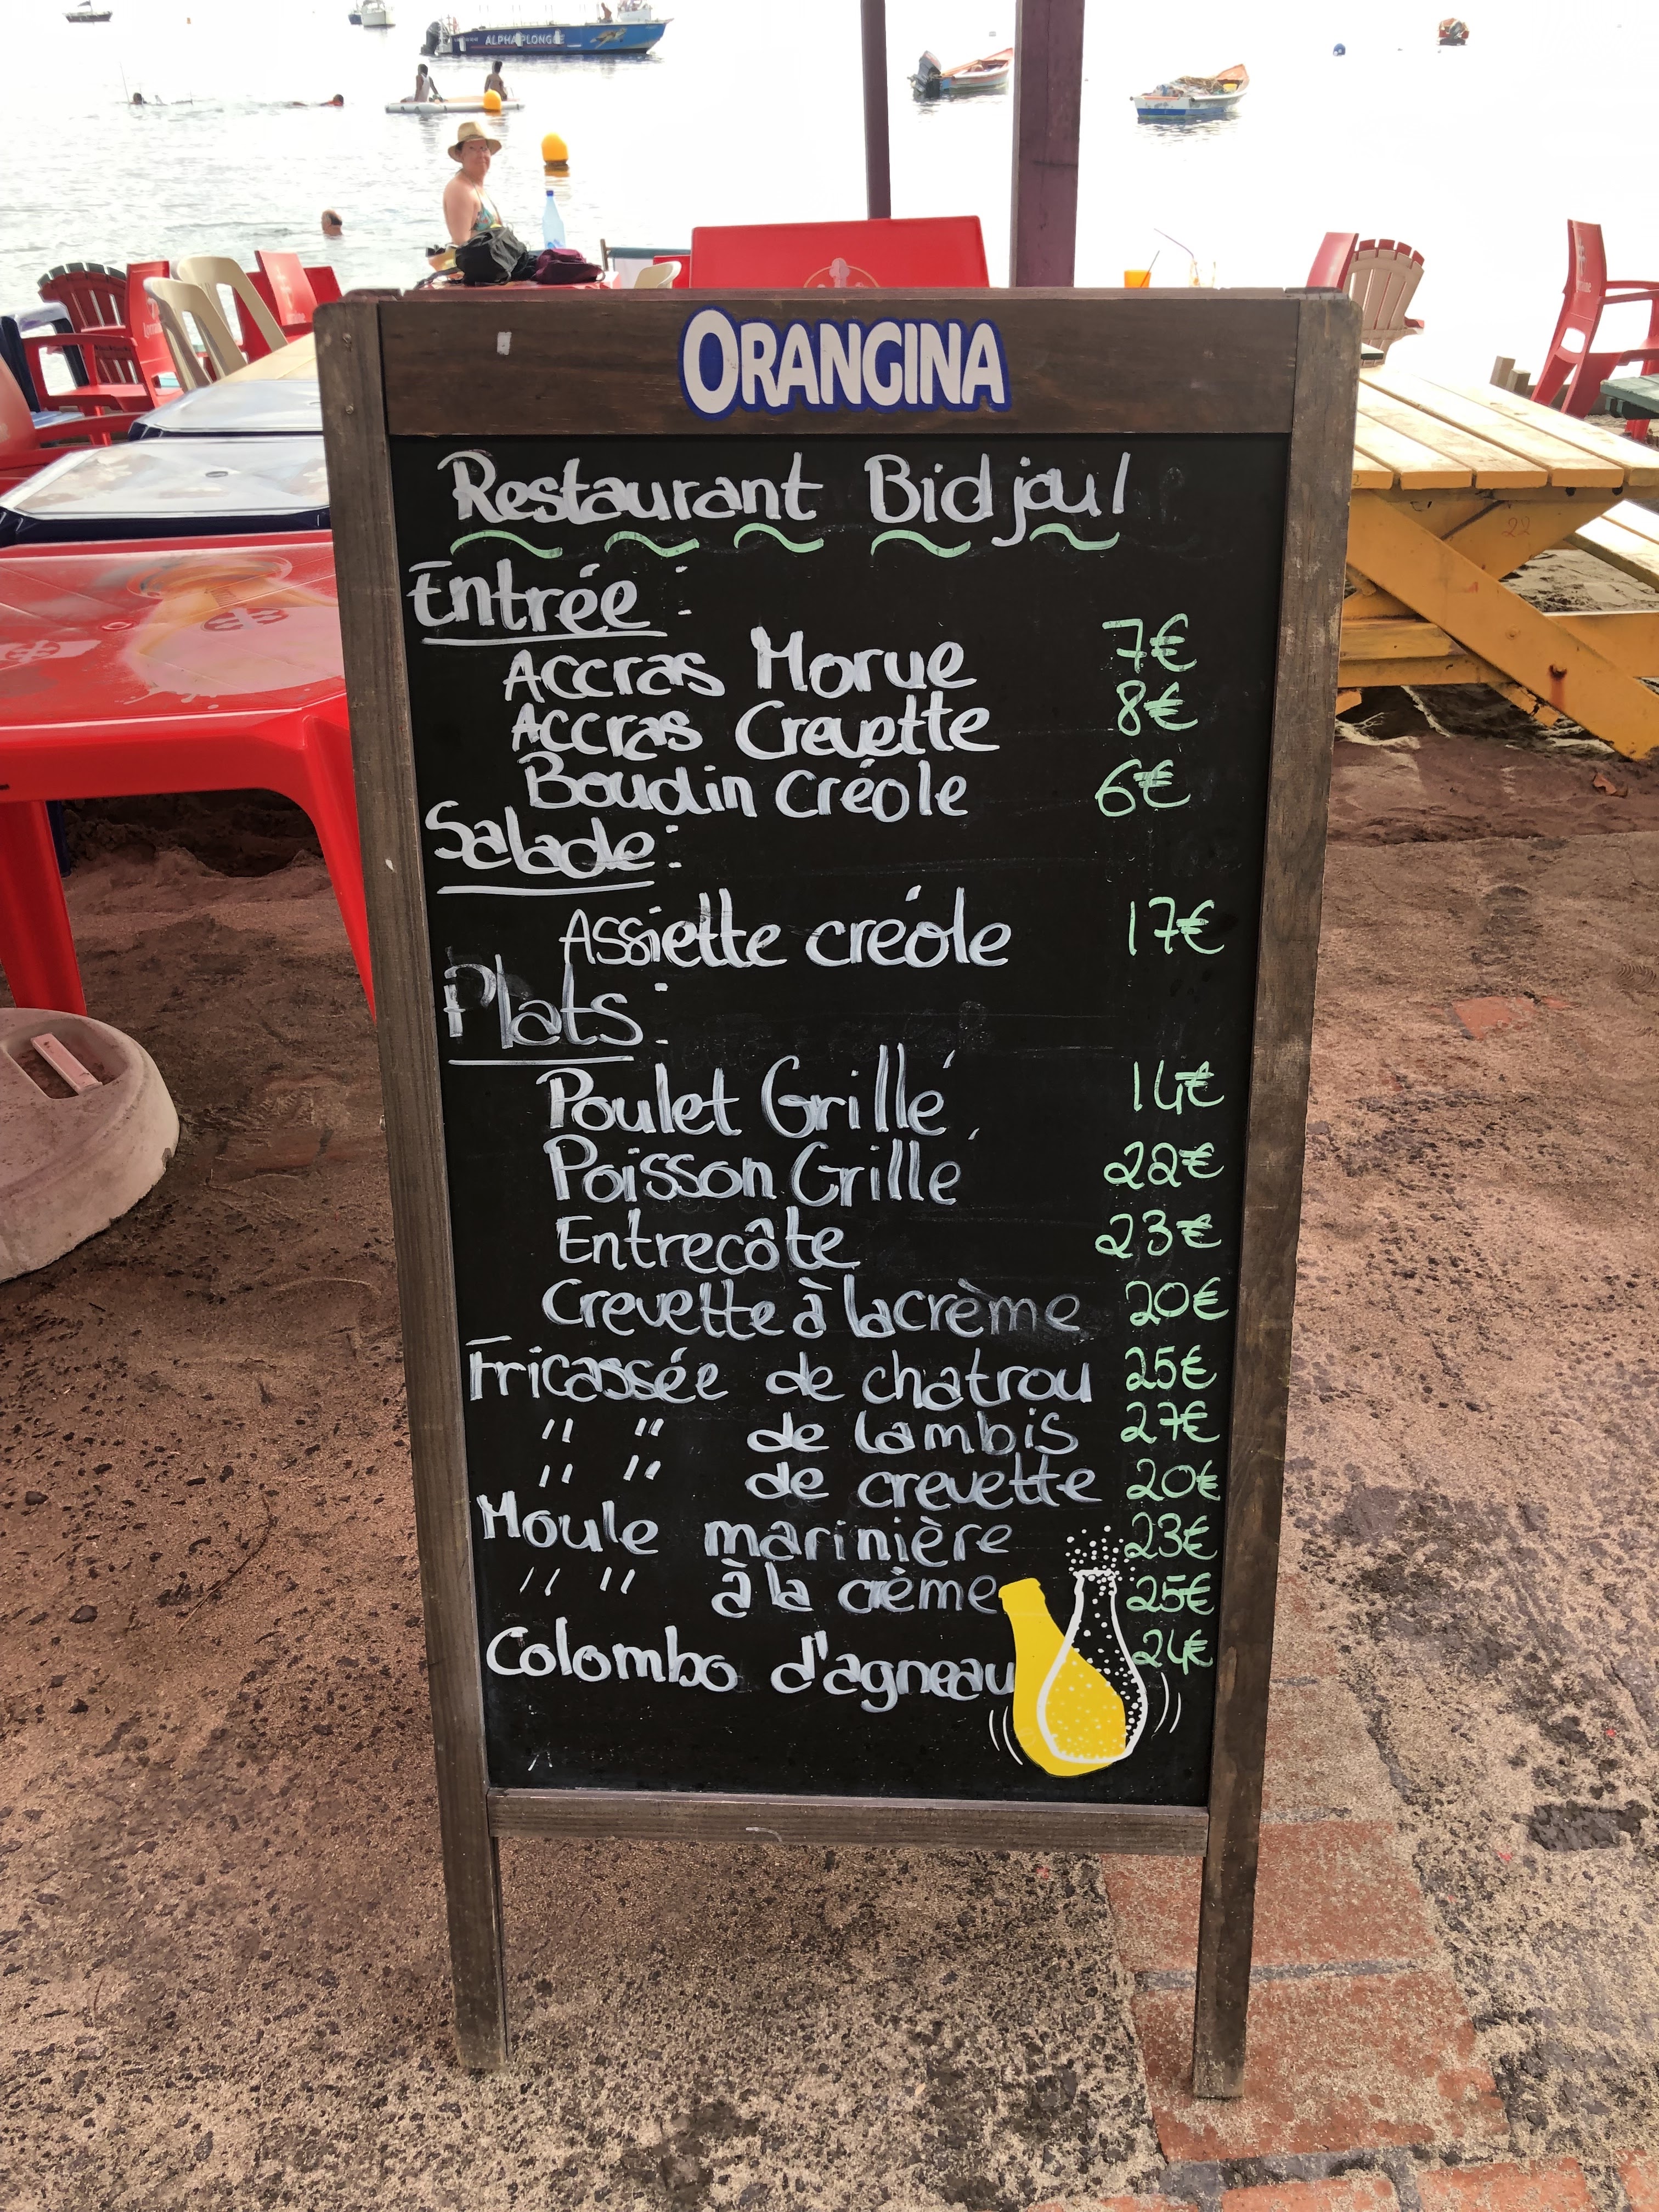 ALPHA PLONGÉE
ORANGINA
Restaurant Bidjoul
Entrée :
Accras Morue 7€
Accras Crevette 8€
Boudin créole 6€
Salade :
Assiette créole 17€
Plats :
Poulet Grillé 14€
Poisson Grillé 22€
Entrecôte 23€
Crevette à la crème 20€
Fricassée de chatrou 25€
" " de lambis 27€
" " de crevette 20€
Moule marinière 23€
" " à la crème 25€
Colombo d'agneau 24€
22